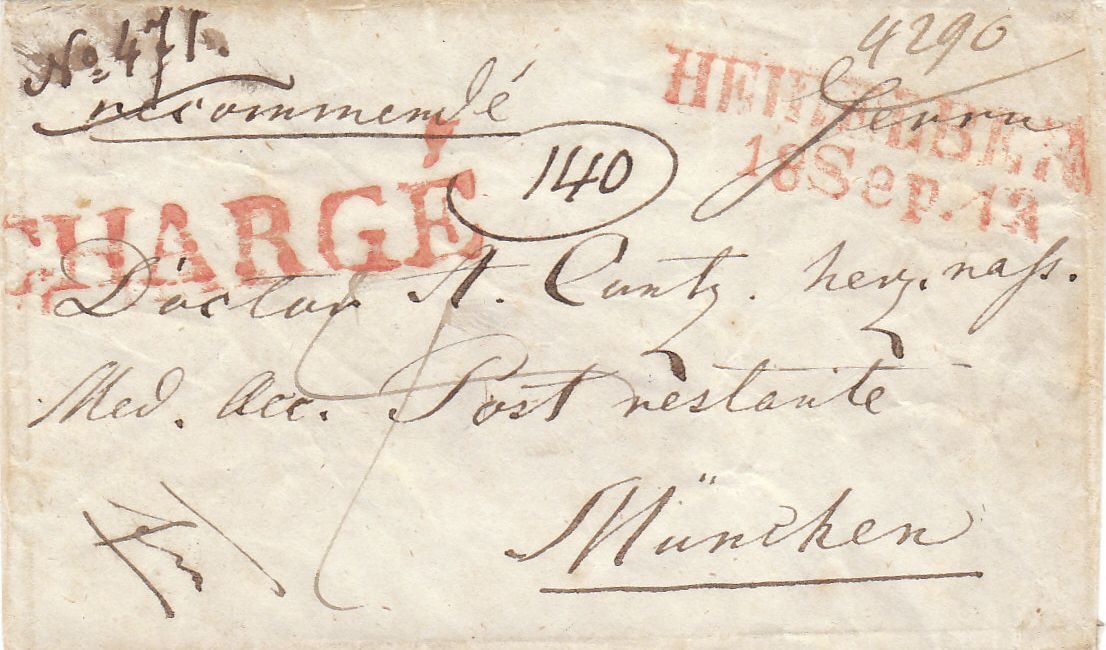 No. 471.
4290
recommendé
HEIDELBERG
18 Sep. 42
Herrn
CHARGÉ
140
Doctor A. Cuntz. herz. nass.
Med. Acc. Post restante
München